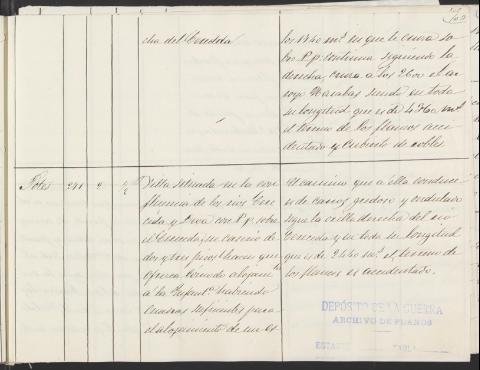 cha del Cereceda
los 1340 mts en que le cruza so
bre P.p. continua siguiendo la
derecha, cruza a los 2600 el ar
royo siendo en toda
su longitud que es de 4360 mts
el terreno de los flancos acci
dentado y cubierto de robles
Potes 241 2
Villa situada en la con
fluencia de los rios
y Deva con P.p. sobre
el su caserio de
dos y tres pisos hacen que
ofrezca comodo alojamto
á la Infanta habiendo
cuadras suficientes para
el alojamiento de un Es
El camino que a ella conduce
es de carros pedregoso y ondulado
sigue la orilla derecha del rio
y en toda su longitud
que es de 2440 mts el terreno de
los flancos es accidentado.
DEPÓSITO DE LA GUERRA
ARCHIVO DE PLANOS
ESTANTE TABLA